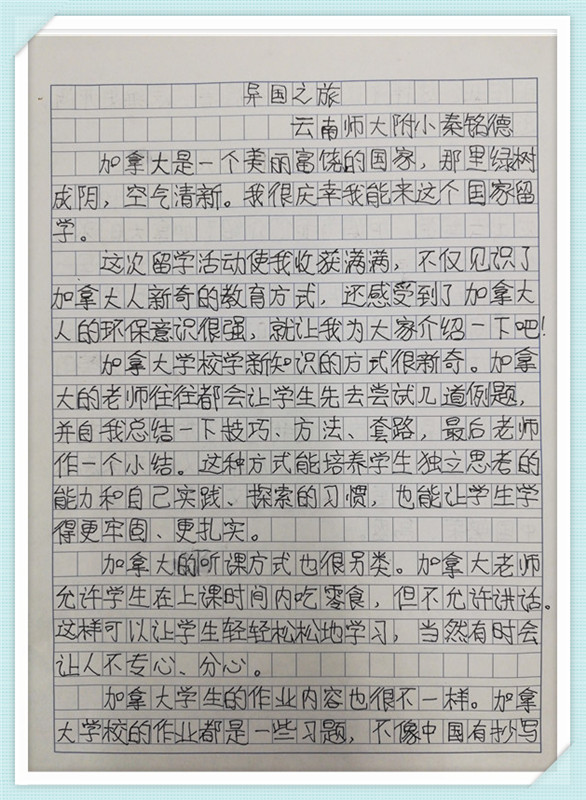 异国之旅
云南师大附小秦铭德
加拿大是一个美丽富饶的国家，那里绿树
成阴，空气清新。我很庆幸我能来这个国家留
学。
这次留学活动使我收获满满，不仅见识了
加拿大人新奇的教育方式，还感受到了加拿大
人的环保意识很强，就让我为大家介绍一下吧！
加拿大学校学新知识的方式很新奇。加拿
大的老师往往都会让学生先去尝试几道例题，
并自我总结一下技巧、方法、套路，最后老师
作一个小结。这种方式能培养学生独立思考的
能力和自己实践、探索的习惯，也能让学生学
得更牢固、更扎实。
加拿大的听课方式也很另类。加拿大老师
允许学生在上课时间内吃零食，但不允许讲话。
这样可以让学生轻轻松松地学习，当然有时会
让人不专心、分心。
加拿大学生的作业内容也很不一样。加拿
大学校的作业都是一些习题，不像中国有抄写